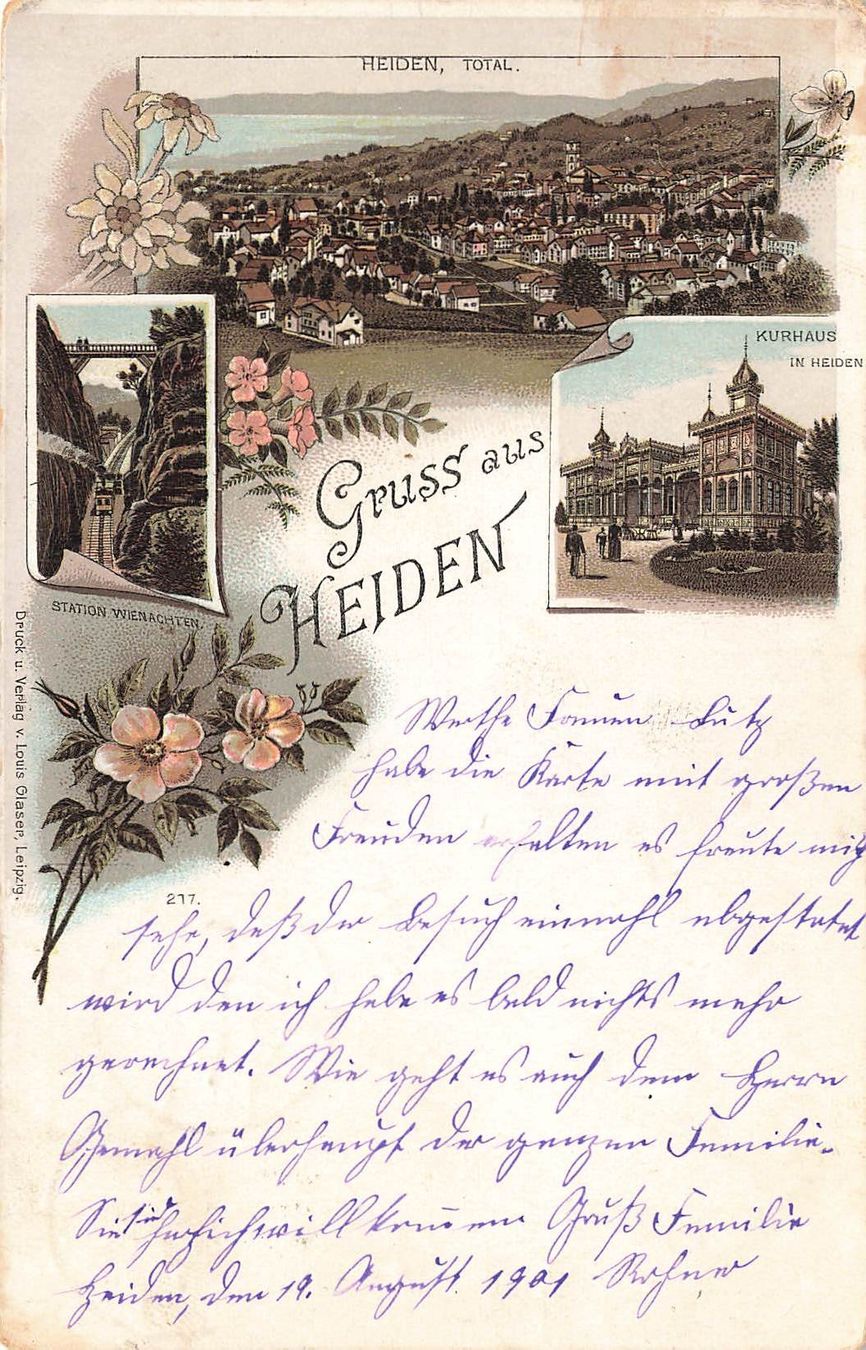 HEIDEN, TOTAL.
KURHAUS
IN HEIDEN
Gruss aus
HEIDEN
STATION WIENACHTEN.
Druck u. Verlag v. Louis Glaser, Leipzig.
217.
Werthe Frauen Lutz
habe die Karte mit großen
Freuden erhalten es freute mich
sehr, daß der Besuch einmahl abgestatet
wird den ich habe es bald nichts mehr
gerechnet. Wie geht es auch dem Herrn
Gemahl überhaupt der ganzen Familie.
Sie sind herzlich willkommen Gruß Familie
Heiden, den 19. August. 1901 Rohner